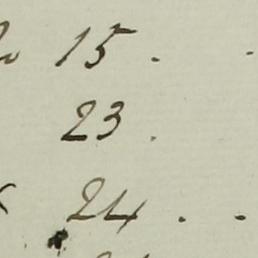 15 . .
23 .
24 . .